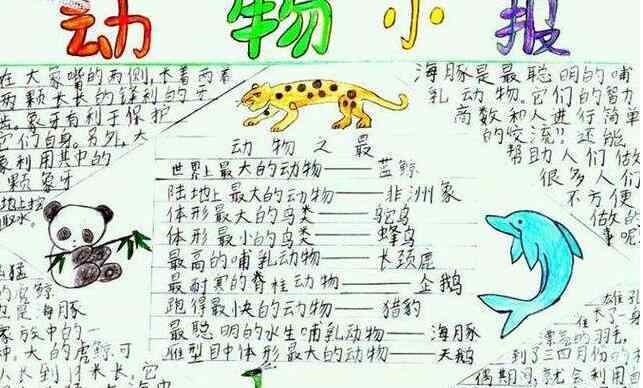 动物小报
在大象嘴的两侧,长着两
两颗长长的锋利的牙
齿。象牙有利于保护
它们自身。另外,大
象利用其中的
颗象牙
地上挖
取水。
动物之最
世界上最大的动物——蓝鲸
陆地上最大的动物——非洲象
体形最大的鸟类——鸵鸟
体形最小的鸟类——蜂鸟
最高的哺乳动物——长颈鹿
最耐寒的脊柱动物——企鹅
跑得最快的动物——猎豹
最聪明的水生哺乳动物——海豚
雁型目中体形最大的动物——天鹅
海豚是最聪明的哺
乳动物。它们的智力
高数和人进行简单
的交流!!还能
帮助人们做
很多人们
不方便
做的
事呢
猛
的虎鲸
也是海豚
家族中的一
种。大的虎鲸可
长到 米长。它
雄孔
在
漂亮的羽毛,
到了三四月份的
偶期间,就会利用